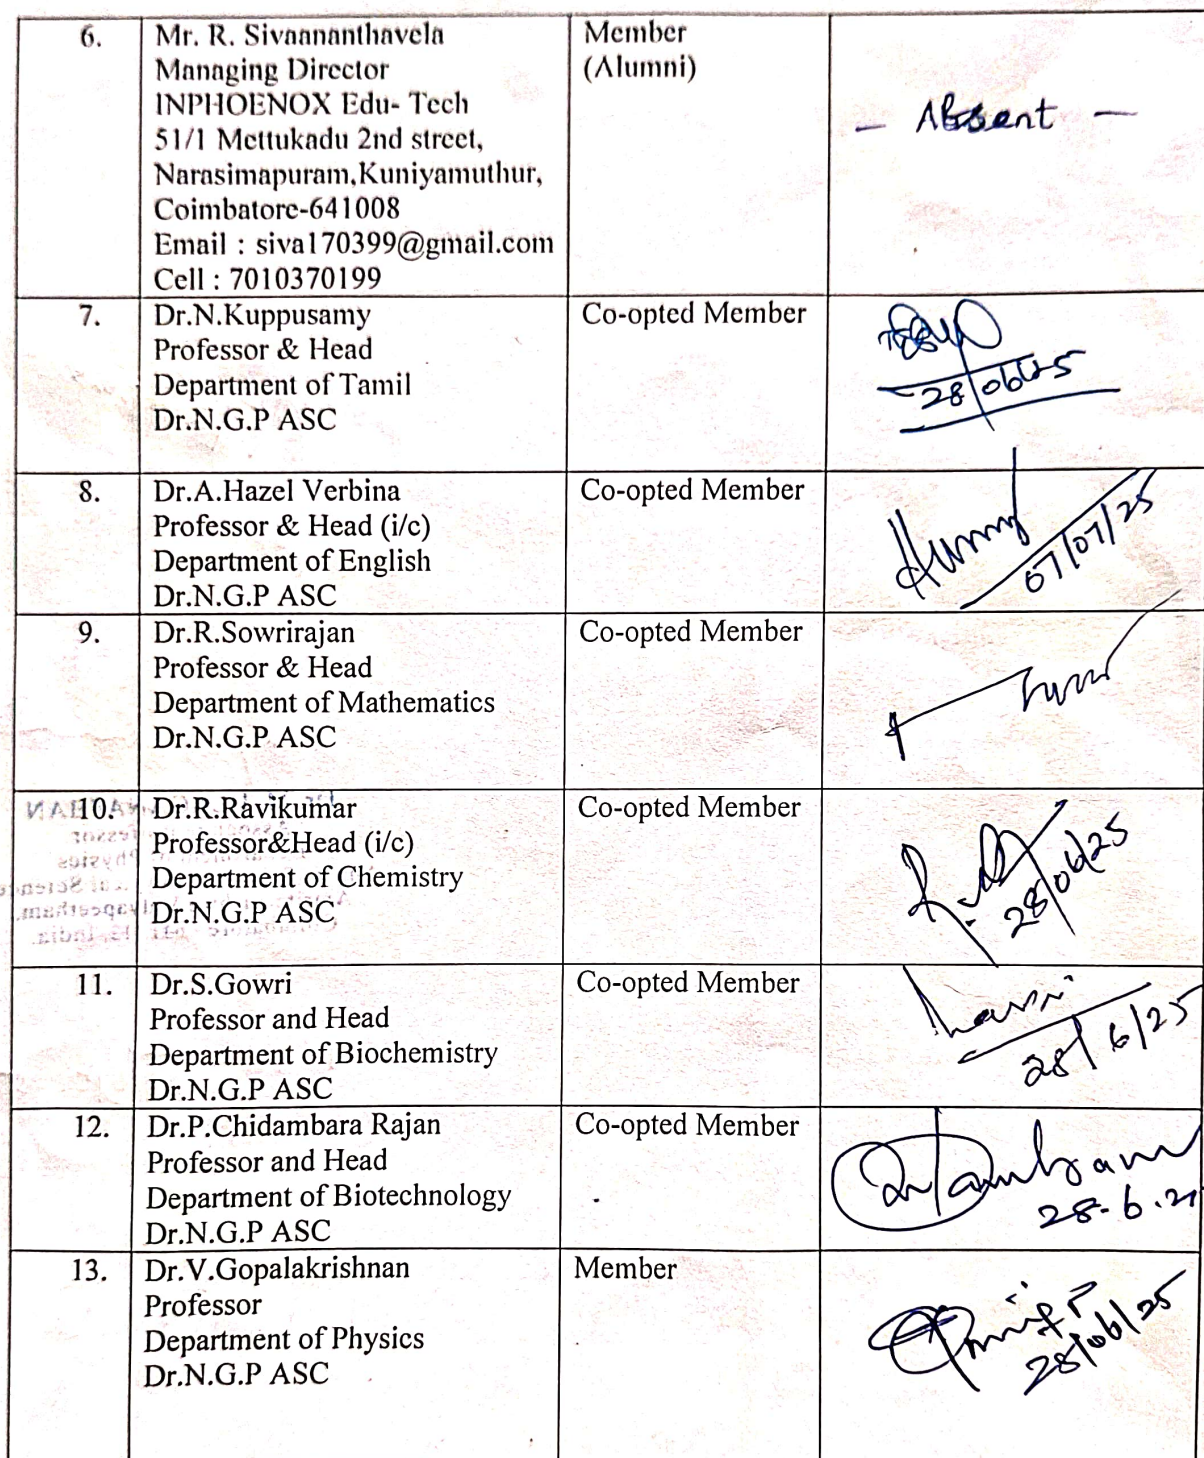 6.
Mr. R. Sivaananthavela
Managing Director
INPHOENOX Edu- Tech
51/1 Mettukadu 2nd street,
Narasimapuram,Kuniyamuthur,
Coimbatore-641008
Email : siva170399@gmail.com
Cell : 7010370199
Member
(Alumni)
- Absent -
7.
Dr.N.Kuppusamy
Professor & Head
Department of Tamil
Dr.N.G.P ASC
Co-opted Member
28/06/25
8.
Dr.A.Hazel Verbina
Professor & Head (i/c)
Department of English
Dr.N.G.P ASC
Co-opted Member
07/07/25
9.
Dr.R.Sowrirajan
Professor & Head
Department of Mathematics
Dr.N.G.P ASC
Co-opted Member
10.
Dr.R.Ravikumar
Professor&Head (i/c)
Department of Chemistry
Dr.N.G.P ASC
Co-opted Member
28/06/25
11.
Dr.S.Gowri
Professor and Head
Department of Biochemistry
Dr.N.G.P ASC
Co-opted Member
28/6/25
12.
Dr.P.Chidambara Rajan
Professor and Head
Department of Biotechnology
Dr.N.G.P ASC
Co-opted Member
13.
Dr.V.Gopalakrishnan
Professor
Department of Physics
Dr.N.G.P ASC
Member
28/06/25